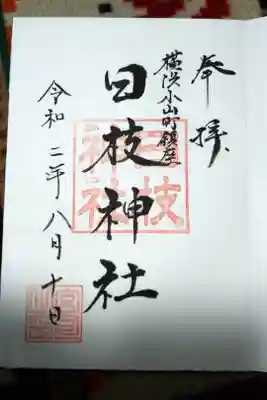 奉拝
横浜小山町鎮座
日枝神社
日枝
神社
令和二年八月十日